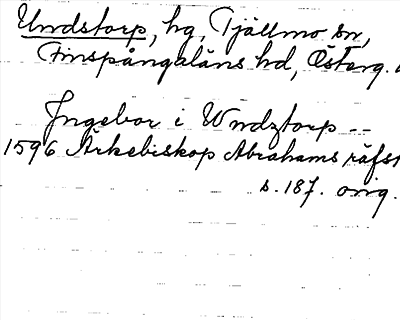 Undstorp, hg, Tjällmo sn,
Finspångaläns hd, Österg.
Ingebor i Wndztorp --
1596 Ärkebiskop Abrahams räfst
s. 187. orig.